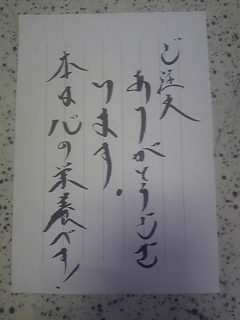 ご注文
ありがとうござ
います。
本日心の栄養べす!